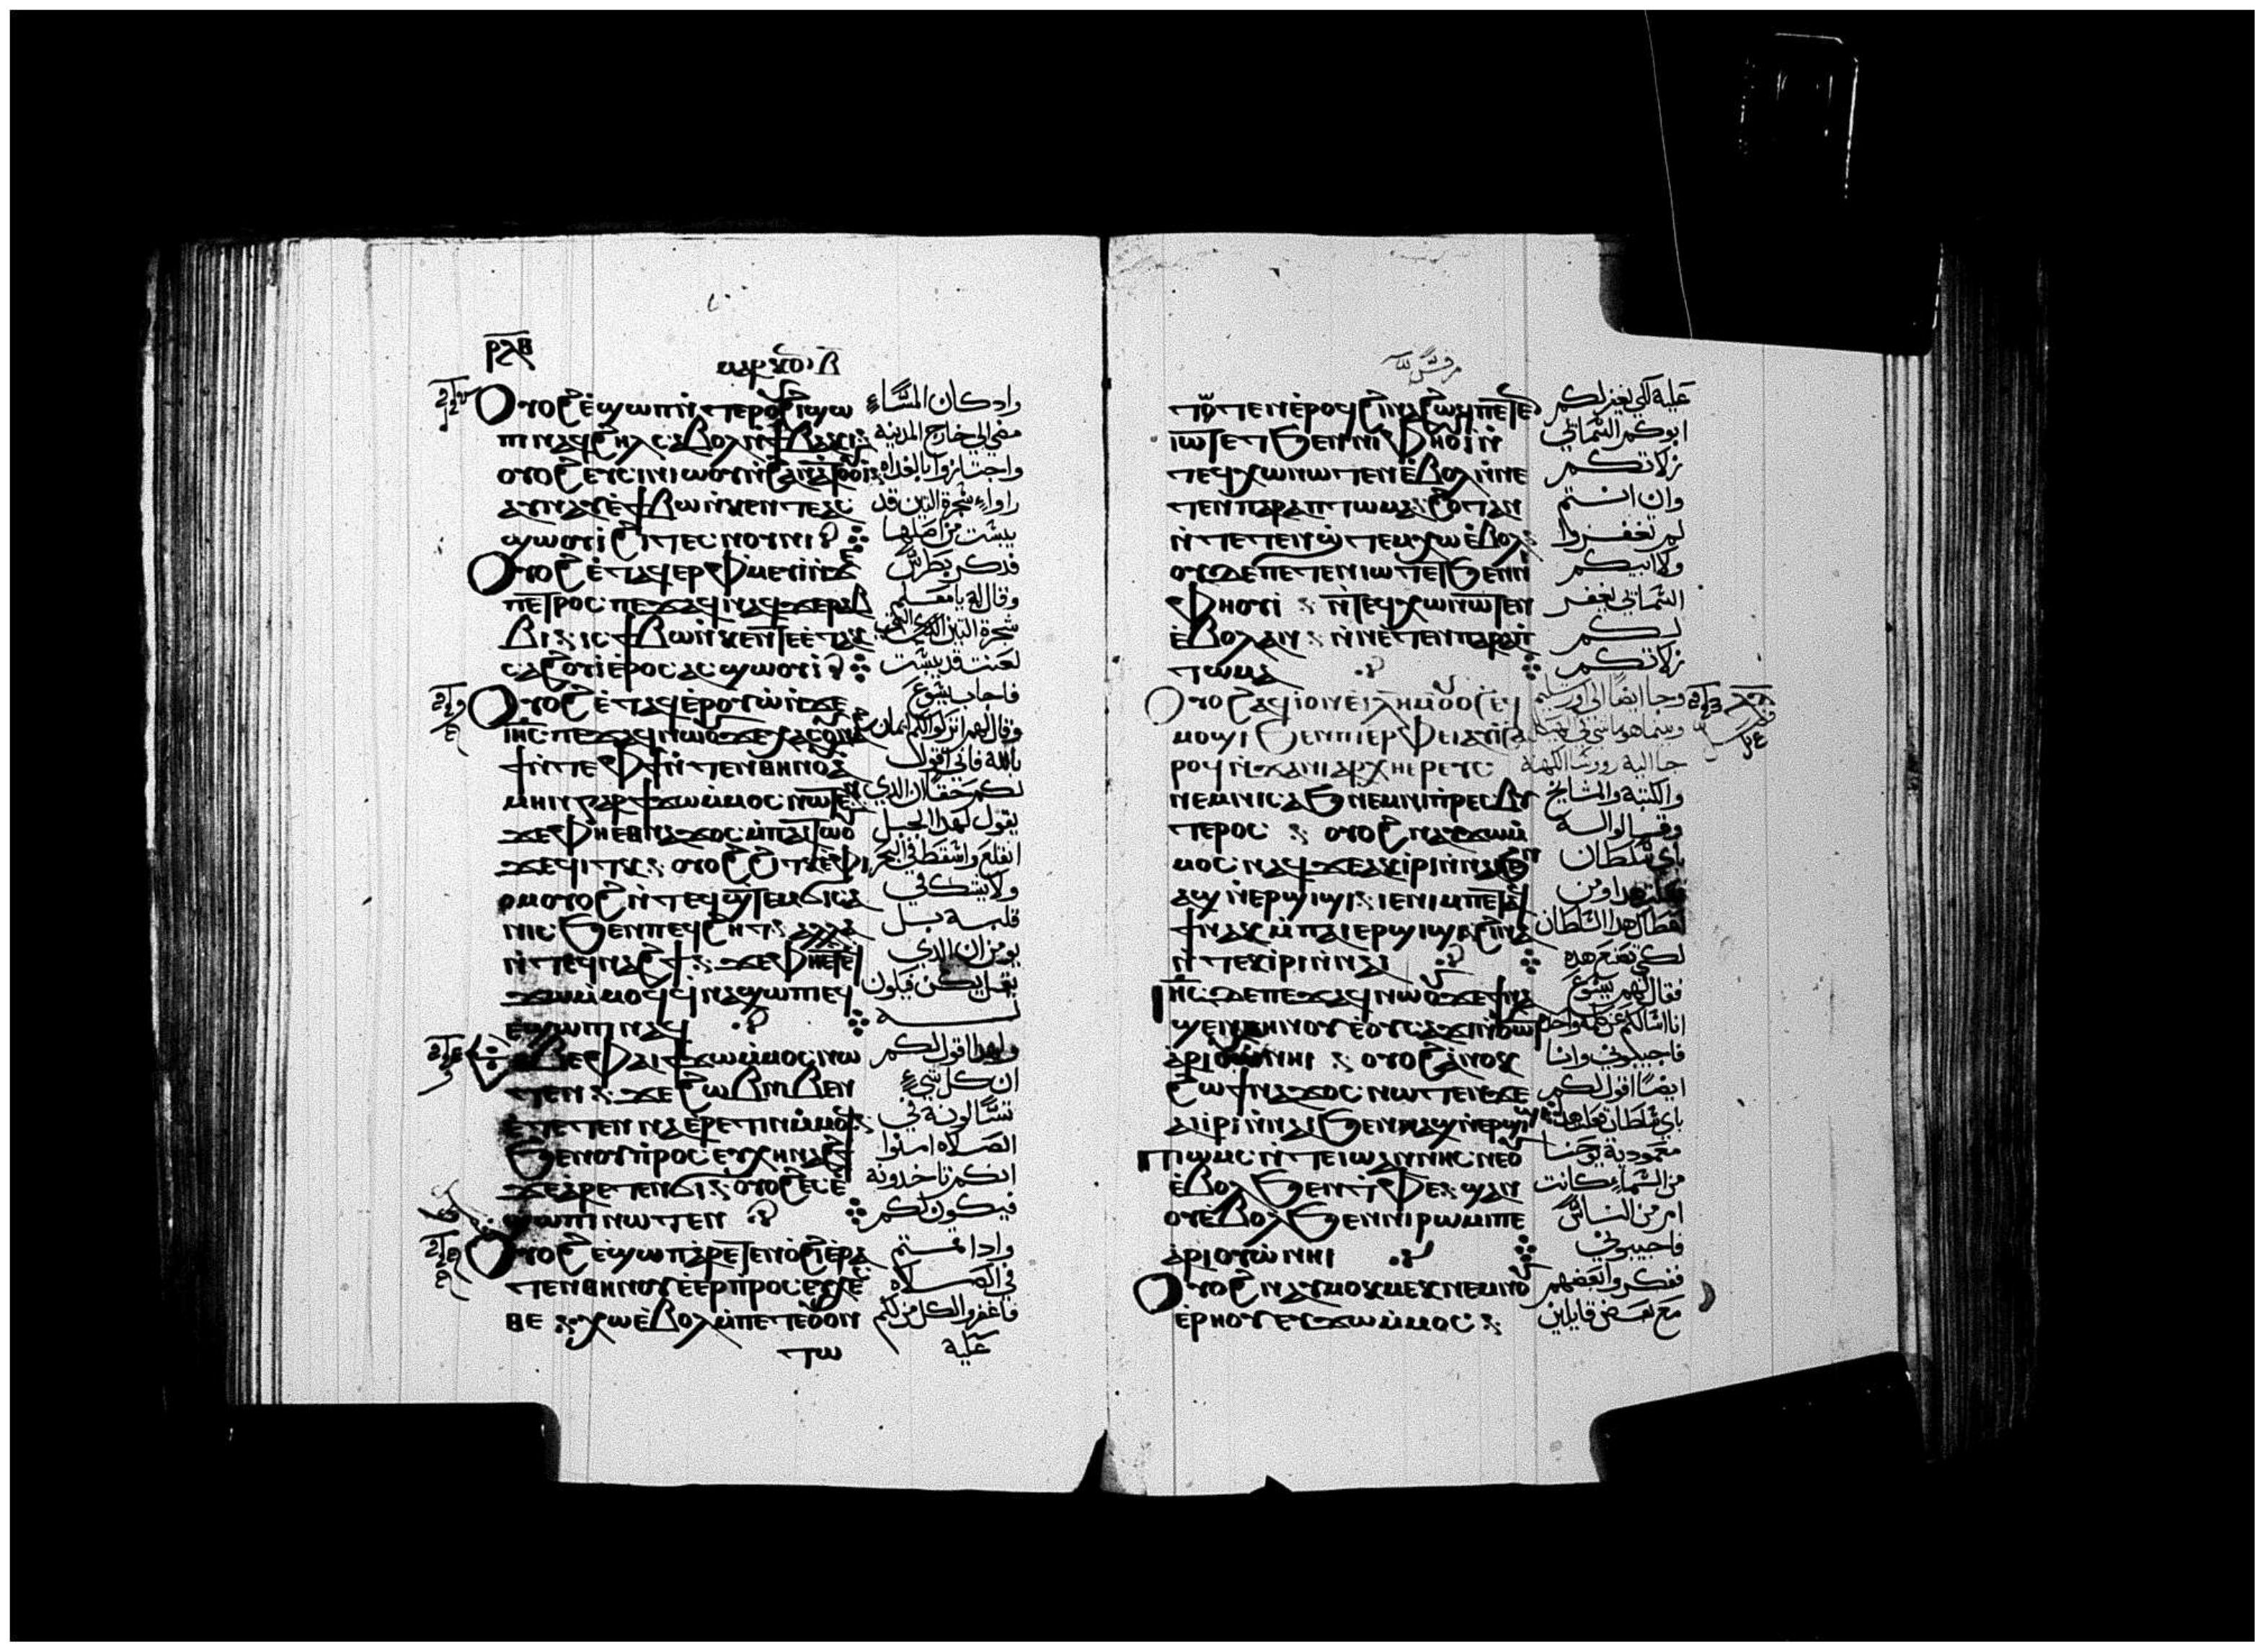 ⲣⲗⲃ
ⲙⲁⲣⲕⲟⲥ ⲃ
ⲟⲩⲟϩ ⲉ̀ϣⲱⲡ ⲛ̀ⲧⲉⲣⲟⲩϩⲓ ϣⲱ
ⲡⲓ ⲛⲁϥϩⲏⲗ ⲥⲁⲃⲟⲗ ⲛ̀ϯⲃⲁⲕⲓ
ⲟⲩⲟϩ ⲉⲩⲥⲓⲛⲓⲱⲟⲩ ⲛ̀ϩⲁⲛⲁⲧⲟⲟⲩⲓ
ⲁⲩⲛⲁⲩ ⲉ̀ϯⲃⲱ ⲛ̀ⲕⲉⲛⲧⲉ ⲁⲥ
ϣⲱⲟⲩⲓ ϩⲓ ⲧⲉⲥⲛⲟⲩⲛⲓ
ⲟⲩⲟϩ ⲉ̀ⲧⲁϥⲉⲣⲫⲙⲉⲩⲓ ⲛ̀ϫⲉ
ⲡⲉⲧⲣⲟⲥ ⲡⲉϫⲁϥ ⲛⲁϥ ϫⲉ ⲣⲁⲃ
ⲃⲓ ⲓⲥ ϯⲃⲱ ⲛ̀ⲕⲉⲛⲧⲉ ⲉ̀ⲧⲁⲕ
ⲥⲁϩⲟⲩⲓ ⲉ̀ⲣⲟⲥ ⲁⲥϣⲱⲟⲩⲓ
ⲟⲩⲟϩ ⲉ̀ⲧⲁϥⲉⲣⲟⲩⲱ̀ ⲛ̀ϫⲉ
ⲓⲏⲥ ⲡⲉϫⲁϥ ⲛⲱⲟⲩ ϫⲉ
ϯ ⲛ̀ⲧⲉⲫϯ ⲛ̀ⲧⲉⲛⲑⲏⲛⲟⲩ
ⲁⲙⲏⲛ ⲅⲁⲣ ϯϫⲱ ⲙ̀ⲙⲟⲥ ⲛⲱⲧⲉⲛ
ϫⲉ ⲫⲏ ⲉⲑⲛⲁϫⲟⲥ ⲙ̀ⲡⲁⲓⲧⲱⲟⲩ
ϫⲉ ϥⲓⲧⲕ ⲟⲩⲟϩ ϩⲓⲧⲕ ⲉ̀ⲫⲓ
ⲟⲙ ⲟⲩⲟϩ ⲛ̀ⲧⲉϥϣⲧⲉⲙϭⲓⲥⲁ
ⲛⲓⲥ ϧⲉⲛ ⲡⲉϥϩⲏⲧ ⲁⲗⲗⲁ
ⲛ̀ⲧⲉϥⲛⲁϩϯ ϫⲉ ⲫⲏ ⲉⲧⲉϥ
ϫⲱ ⲙ̀ⲙⲟϥ ϥⲛⲁϣⲱⲡⲓ ⲉϥ
ⲉ̀ϣⲱⲡⲓ ⲛⲁϥ
ⲉⲑⲃⲉ ⲫⲁⲓ ϯϫⲱ ⲙ̀ⲙⲟⲥ ⲛⲱ
ⲧⲉⲛ ϫⲉ ϩⲱⲃ ⲛⲓⲃⲉⲛ
ⲉ̀ⲧⲉⲧⲉⲛⲛⲁⲉⲣⲉⲧⲓⲛ ⲙ̀ⲙⲟⲩ
ϧⲉⲛ ⲟⲩⲡⲣⲟⲥⲉⲩⲭⲏ ⲛⲁϩϯ
ϫⲉ ⲁⲣⲉⲧⲉⲛϭⲓ ⲟⲩⲟϩ ⲉⲥⲉ̀
ϣⲱⲡⲓ ⲛⲱⲧⲉⲛ
ⲟⲩⲟϩ ⲉ̀ϣⲱⲡ ⲁⲣⲉⲧⲉⲛⲟ̀ϩⲓ ⲉ̀ⲣⲁ
ⲧⲉⲛⲑⲏⲛⲟⲩ ⲉ̀ⲉⲣⲡⲣⲟⲥⲉⲩⲭⲉ
ⲥⲑⲉ ⲭⲱ ⲉ̀ⲃⲟⲗ ⲙ̀ⲡⲉⲧⲉ ⲟⲩⲟⲛ
ⲧⲱ
واذ كان المساء
مضى الى خارج المدينه
واجتازوا بالغداه
راوا شجرة التين قد
يبست من اصلها
فذكر بطرس
وقال له يا معلم
شجرة التين التي
لعنت قد يبست
فاجاب يسوع
وقال لهم
بالله فاني اقول
لكم حقا ان الذي
يقول لهذا الجبل
انقلع واسقط في البحر
ولا يشك في
قلبه بل
يومن ان الذي
يقول يكن فيكون
له
ولهذا اقول لكم
ان كل شيء
تسالونه في
الصلاه امنوا
انكم تاخذونه
فيكون لكم
واذا قمتم
في الصلاه
فاغفروا لكل من لكم
عليه
مرقس
ⲧⲱⲧⲉⲛ ⲉ̀ⲣⲟϥ ϩⲓⲛⲁ ϩⲱϥ ⲡⲉⲧⲉⲛ
ⲓⲱⲧ ⲉⲧϧⲉⲛ ⲛⲓⲫⲏⲟⲩⲓ ⲛ̀
ⲧⲉϥⲭⲱ ⲛⲱⲧⲉⲛ ⲉ̀ⲃⲟⲗ ⲛ̀ⲛⲉ
ⲧⲉⲛⲡⲁⲣⲁⲡⲧⲱⲙⲁ ϩⲟⲧⲁⲛ
ⲛ̀ⲧⲉⲧⲉⲛϣⲧⲉⲙⲭⲱ ⲉ̀ⲃⲟⲗ
ⲟⲩⲇⲉ ⲡⲉⲧⲉⲛⲓⲱⲧ ⲉⲧϧⲉⲛ ⲛⲓ
ⲫⲏⲟⲩⲓ ⲛ̀ⲧⲉϥⲭⲱ ⲛⲱⲧⲉⲛ
ⲉ̀ⲃⲟⲗ ⲁⲛ ⲛ̀ⲛⲉⲧⲉⲛⲡⲁⲣⲁⲡ
ⲧⲱⲙⲁ
ⲟⲩⲟϩ ⲁϥⲓ̀ ⲟⲛ ⲉ̀ⲓⲗⲏⲙ ⲟⲩⲟϩ ⲉϥ
ⲙⲟϣⲓ ϧⲉⲛ ⲡⲓⲉⲣⲫⲉⲓ ⲁⲩⲓ̀ ϩⲁ
ⲣⲟϥ ⲛ̀ϫⲉ ⲛⲓⲁⲣⲭⲏⲉⲣⲉⲩⲥ
ⲛⲉⲙ ⲛⲓⲥⲁϧ ⲛⲉⲙ ⲛⲓⲡⲣⲉⲥⲃⲩ
ⲧⲉⲣⲟⲥ ⲟⲩⲟϩ ⲛⲁⲩϫⲱ ⲙ̀
ⲙⲟⲥ ⲛⲁϥ ϫⲉ ⲁⲕⲓⲣⲓ ⲛ̀ⲛⲁⲓ ϧⲉⲛ
ⲁϣ ⲛ̀ⲉⲣϣⲓϣⲓ ⲓⲉ ⲛⲓⲙ ⲡⲉⲧⲁϥ
ϯ ⲛⲁⲕ ⲙ̀ⲡⲁⲓⲉⲣϣⲓϣⲓ ϩⲓⲛⲁ
ⲛ̀ⲧⲉⲕⲓⲣⲓ ⲛ̀ⲛⲁⲓ
ⲓⲏⲥ ⲇⲉ ⲡⲉϫⲁϥ ⲛⲱⲟⲩ ϫⲉ ϯⲛⲁ
ϣⲉⲛⲑⲏⲛⲟⲩ ⲉ̀ⲟⲩⲥⲁϫⲓ ⲛ̀ⲟⲩⲱⲧ
ⲁⲣⲓⲟⲩⲱ̀ ⲛⲏⲓ ⲟⲩⲟϩ ⲁⲛⲟⲕ
ϩⲱ ϯⲛⲁϫⲟⲥ ⲛⲱⲧⲉⲛ ϫⲉ
ⲁⲓⲓⲣⲓ ⲛ̀ⲛⲁⲓ ϧⲉⲛ ⲁϣ ⲛ̀ⲉⲣϣⲓϣⲓ
ⲡⲓⲱⲙⲥ ⲛ̀ⲧⲉ ⲓⲱⲁⲛⲛⲏⲥ ⲛⲉ ⲟⲩ
ⲉ̀ⲃⲟⲗ ϧⲉⲛ ⲧⲫⲉ ϣⲁⲛ
ⲟⲩⲉ̀ⲃⲟⲗ ϧⲉⲛ ⲛⲓⲣⲱⲙⲓ ⲡⲉ
ⲁⲣⲓⲟⲩⲱ̀ ⲛⲏⲓ
ⲟⲩⲟϩ ⲛⲁⲩⲙⲟⲕⲙⲉⲕ ⲛⲉⲙ ⲛⲟⲩ
ⲉ̀ⲣⲏⲟⲩ ⲉⲩϫⲱ ⲙ̀ⲙⲟⲥ
عليه لكي يغفر لكم
ابوكم السماىي
زلاتكم
وان انتم
لم تغفروا
ولا ابيكم
السماىي يغفر
لكم
زلاتكم
وجا ايضا الى اورشليم
وبينما هو ماشي في الهيكل
جا اليه روسا الكهنه
والكتبه والمشايخ
وقالوا له
باي سلطان
اومن
اعطاك هذا السلطان
لكي تصنع هذه
فقال لهم يسوع
انا اسالكم عن كلمه واحده
فاجيبوني وانا
ايضا اقول لكم
باي سلطان فعلت هذا
معمودية يوحنا
من السماء كانت
ام من الناس
فاجيبوني
ففكروا بعضهم
مع بعض قايلين